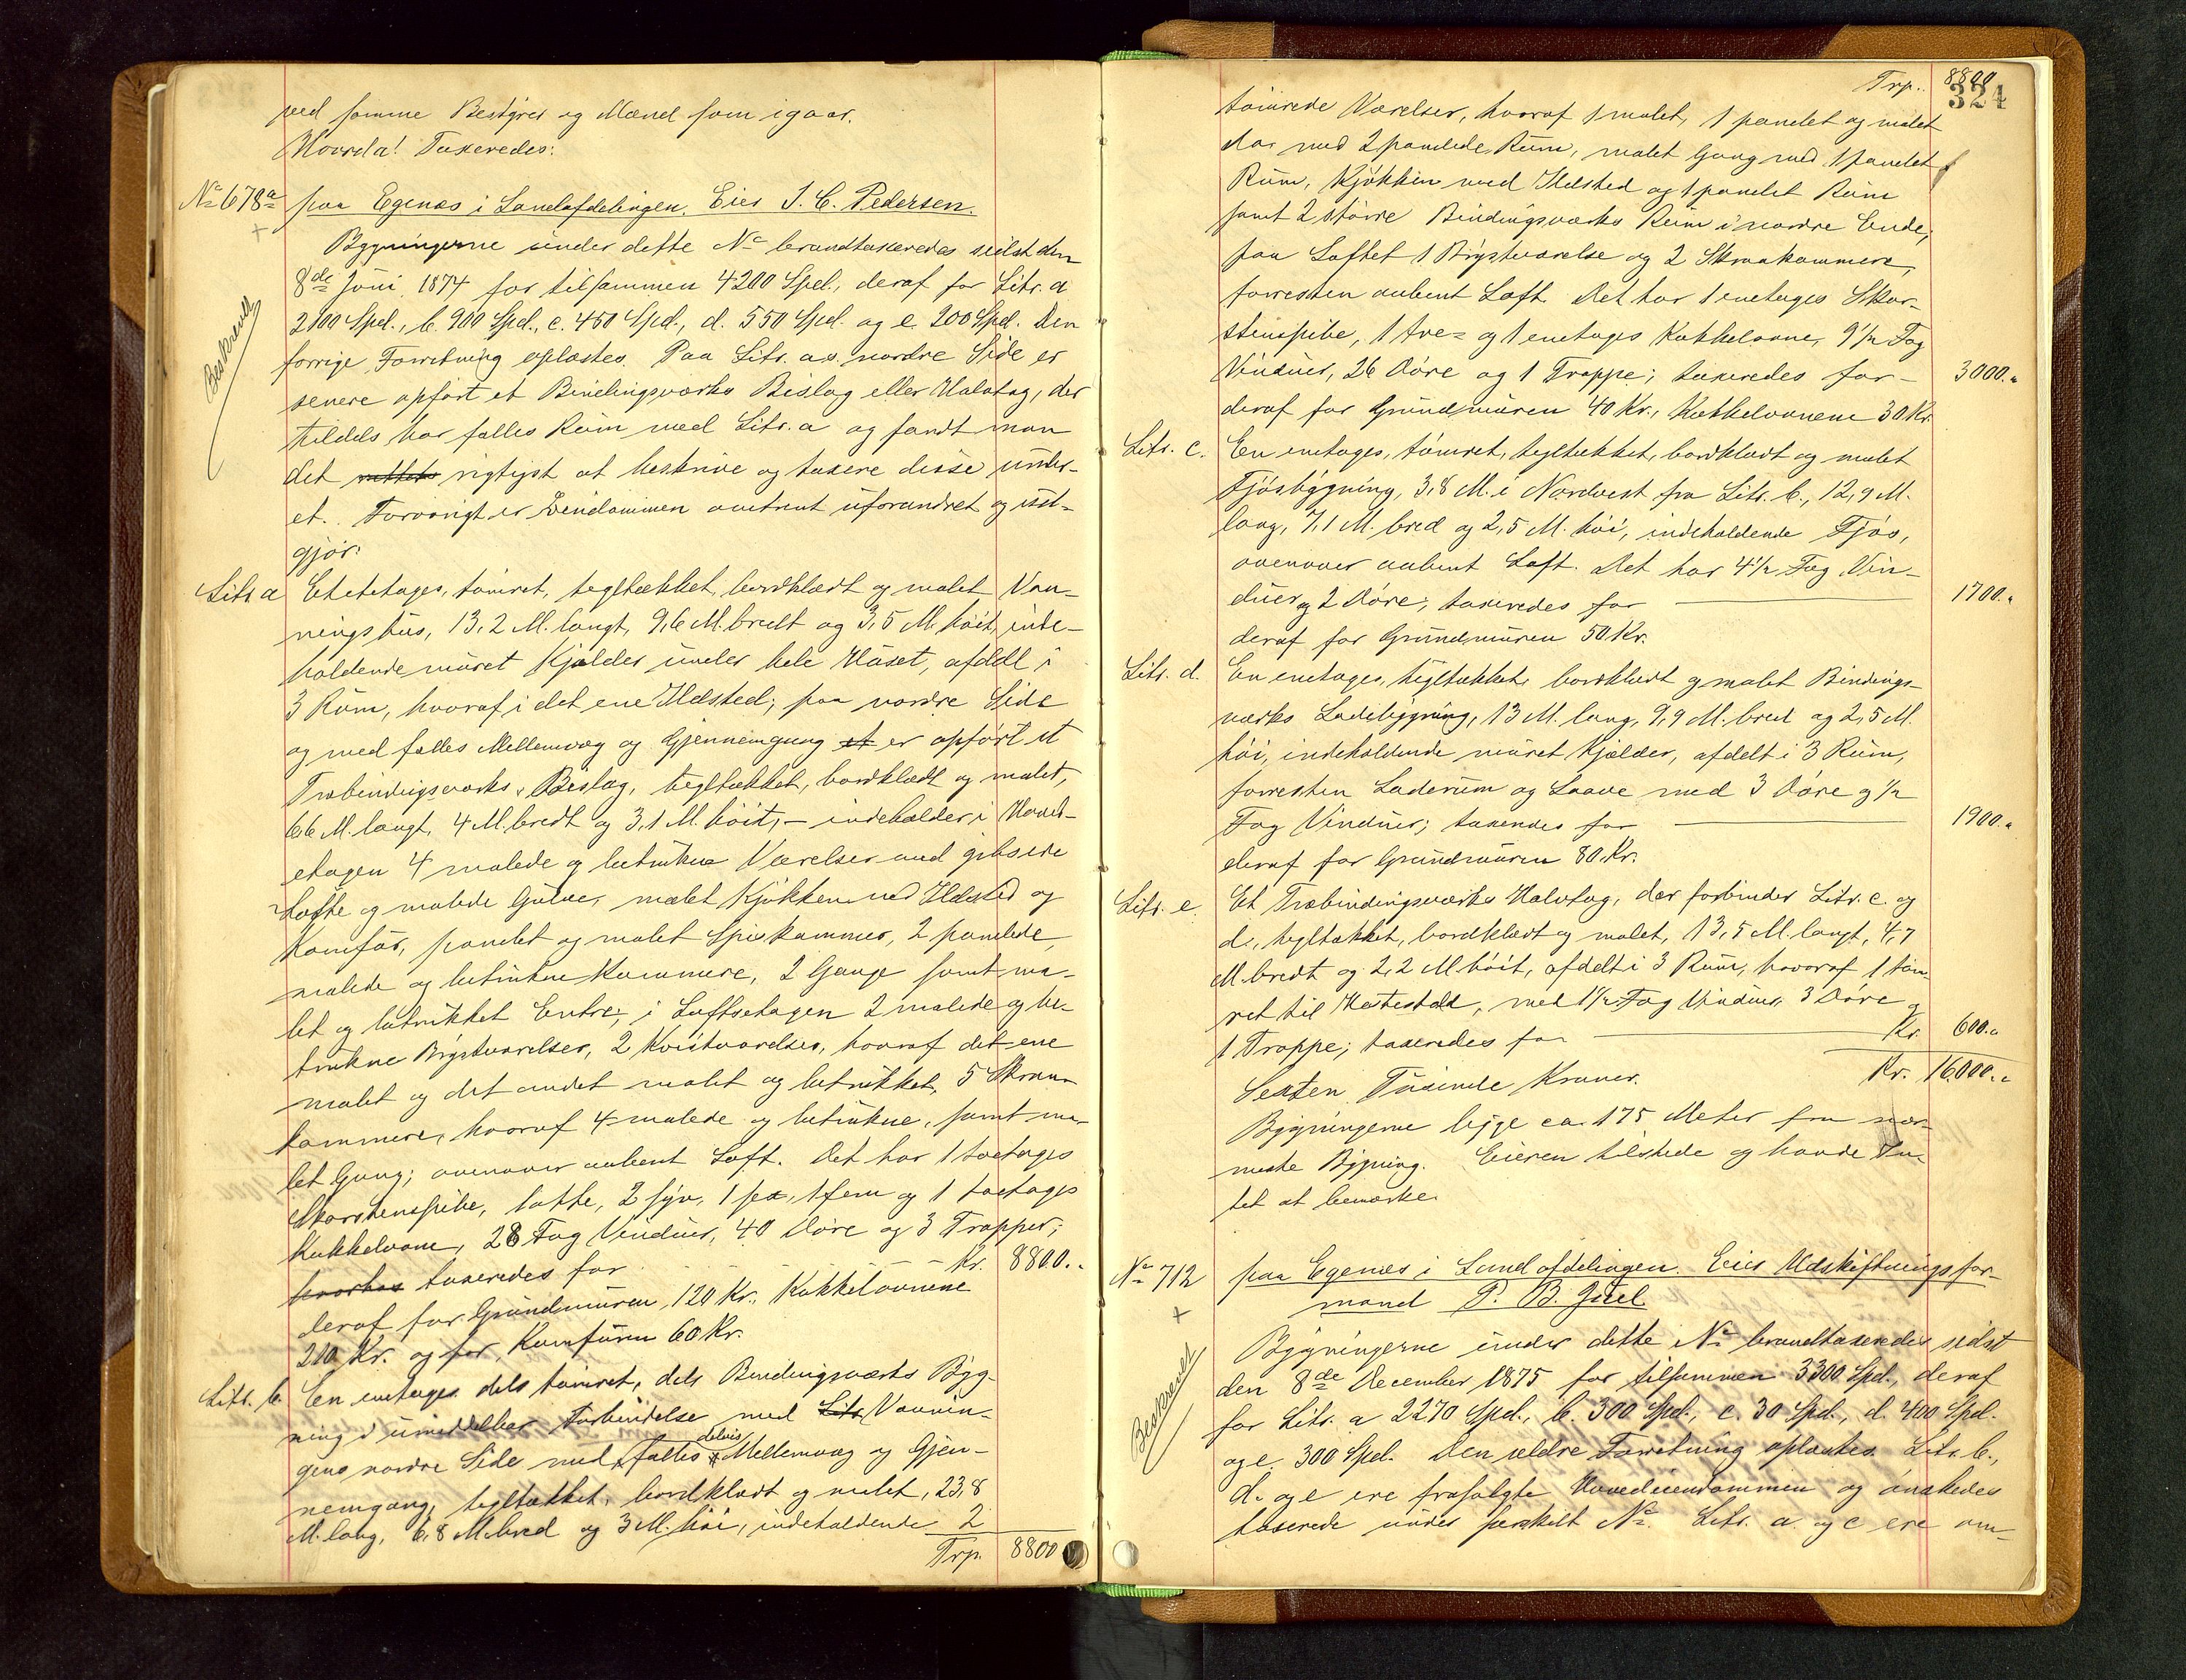 ved samme Bestyrer og Mænd som igaar.
Hvorda! Taxeredes:
No 678a paa Egenæs i Landafdelingen. Eier J. C. Pedersen.
Bygningerne under dette No brandtaxeredes sidst den
8de Juni 1874 for tilsammen 4200 Spd., deraf for Litr. a
2100 Spd., b. 900 Spd., c. 450 Spd., d. 550 Spd. og e. 200 Spd. Den
Beskrevet
forrige Forretning oplæstes. Paa Litr. a.s nordre Side er
senere opført et Bindingsværks Bislag eller Halvtag, der
tildels har fælles Rum med Litr. a og fandt man
det rigtigst at beskrive og taxere disse under
et. Forøvrigt er Eiendommen omtrent uforandret og ud-
gjør:
Litr. a Et etetages, tømret, tegltækket, bordklædt og malet Vaa-
ningshus, 13,2 M. langt, 9,6 M. bredt og 3,5 M. høit, inde-
holdende muret Kjælder under hele Huset, afdelt i
3 Rum, hvoraf i det ene Ildsted; paa nordre Side
og med fælles Mellemvæg og Gjennemgang et er opført et
Træbindingsværks Bislag, tegltækket, bordklædt og malet,
6,6 M. langt, 4 M. bredt og 3,1 M. høit, – indeholder i Hoved-
etagen 4 malede og betrukne Værelser med gibsede
Lofte og malede Gulve, malet Kjøkken med Ildsted og
Komfur, panelet og malet Spiskammer, 2 panelede,
malede og betrukne Kammere, 2 Gange samt ma-
let og betrukket Entre; i Loftsetagen 2 malede og be-
trukne Brystværelser, 2 Kvistværelser, hvoraf det ene
malet og det andet malet og betrukket, 5 Skraa-
kammere, hvoraf 4 malede og betrukne, samt ma-
let Gang; ovenover aabent Loft. Det har 1 toetages
Skorstenspibe, 2 syv, 1 sex, 1 fem og 1 toetages
Kakkelovne, 28 Fag Vinduer, 40 Døre og 3 Trapper;
hvorhos taxeredes for Kr. 8800.„
deraf for Grundmuren 120 Kr., Kakkelovnene
210 Kr. og for Komfuren 60 Kr.
Litr. b. En enetages dels tømret, dels Bindingsværks Byg-
ning i umiddelbar Forbindelse med Litr. Vaanin-
gens nordre Side med delvis fælles Mellemvæg og Gjen-
nemgang, tegltækket, bordklædt og malet, 23,8
M. lang, 6,8 M. bred og 3 M. høi, indeholdende 2
Trp. 8800
Trp. 8800
324
tømrede Værelser, hvoraf 1 malet, 1 panelet og malet
do. med 2 panelede Rum, malet Gang med 1 panelet
Rum, Kjøkken med Ildsted og 1 panelet Rum
samt 2 større Bindingsværks Rum i nordre Ende;
paa Loftet 1 Brystværelse og 2 Skraakammere,
forresten aabent Loft. Det har 1 enetages Skor-
stenspibe, 1 tre- og 1 enetages Kakkelovne, 9 1/2 Fag
Vinduer, 26 Døre og 1 Trappe; taxeredes for – 3000.„
deraf for Grundmuren 40 Kr., Kakkelovnene 30 Kr.
Litr. c. En enetages, tømret, tegltækket, bordklædt og malet
Fjøsbygning, 3,8 M. i Nordvest fra Litr. b., 12,9 M.
lang, 7,1 M. bred og 2,5 M. høi, indeholdende Fjøs,
ovenover aabent Loft. Det har 4 1/2 Fag Vin-
duer og 2 Døre; taxeredes for 1700.„
deraf for Grundmuren 50 Kr.
Litr. d. En enetages, tegltækket, bordklædt og malet Bindings-
værks Ladebygning, 13 M. lang, 9,9 M. bred og 2,5 M.
høi, indeholdende muret Kjælder, afdelt i 3 Rum,
forresten Laderum og Laave med 3 Døre og 1/2
Fag Vinduer; taxeredes for 1900.„
deraf for Grundmuren 80 Kr.
Litr. e. Et Træbindingsværks Halvtag, der forbinder Litr. c. og
d., tegltækket, bordklædt og malet, 13,5 M. langt, 4,7
M. bredt og 2,2 M. høit, afdelt i 3 Rum, hvoraf 1 tøm-
ret til Hestestald, med 1 1/2 Fag Vinduer, 3 Døre og
1 Trappe; taxeredes for Kr. 600.„
Sexten Tusinde Kroner. Kr. 16,000.„
Bygningerne ligge ca. 175 Meter fra nær-
meste Bygning. Eieren tilstede og havde In-
tet at bemærke.
No 712 paa Egenæs i Landafdelingen. Eier Udskiftningsfor-
mand P. B. Juel.
Bygningerne under dette No brandtaxeredes sidst
Beskrevet
den 8de December 1875 for tilsammen 3300 Spd., deraf
for Litr. a 2270 Spd., b. 300 Spd., c. 30 Spd., d. 400 Spd.
og e. 300 Spd. Den ældre Forretning oplæstes. Litr. b.,
d. og e ere frasolgte Hovedeiendommen og ønskedes
taxerede under særskilt No. Litr. a. og c ere om-